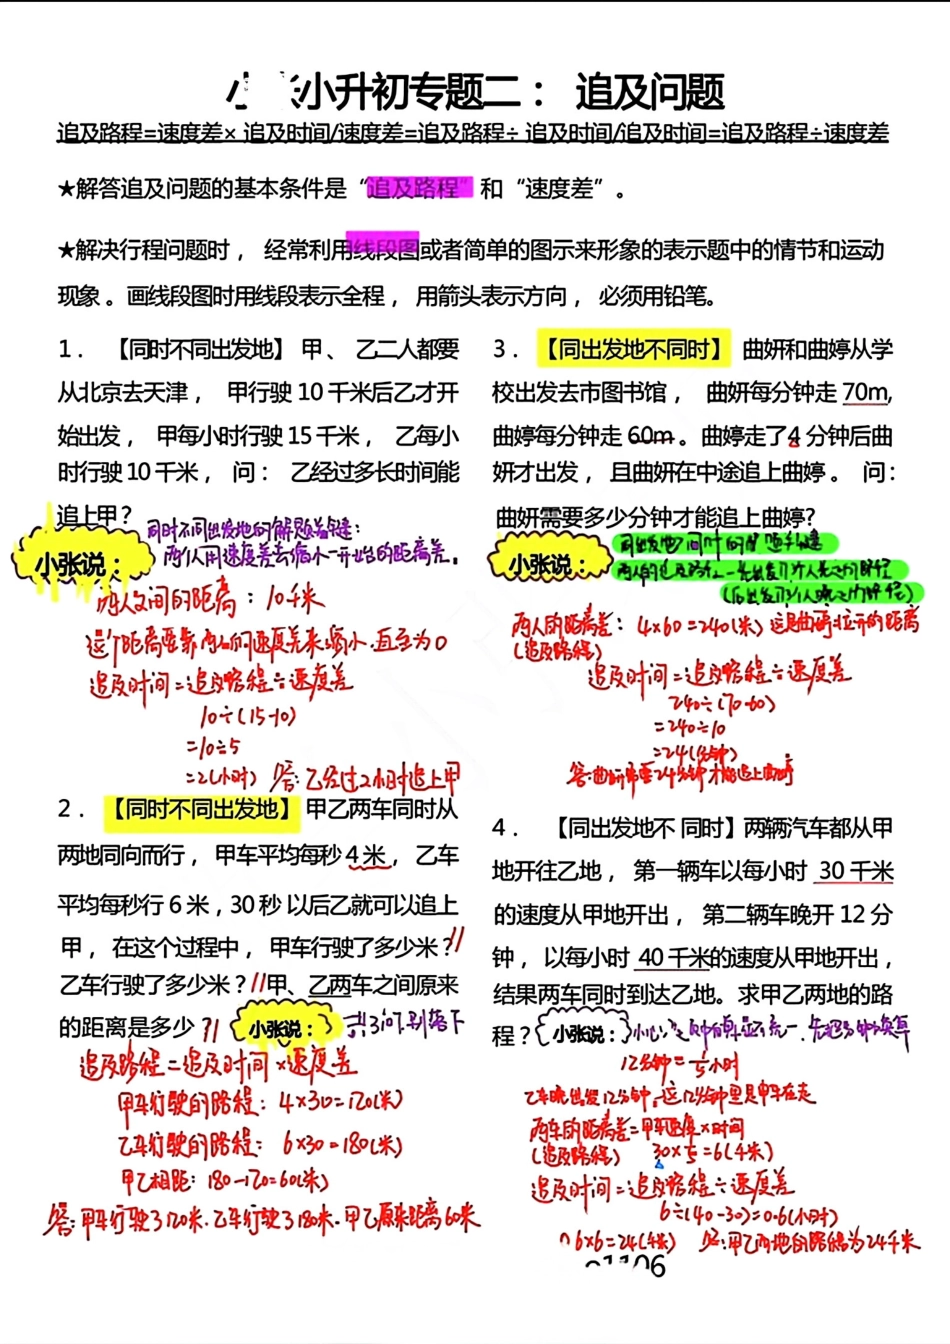 小张小升初专题二： 追及问题
追及路程=速度差× 追及时间/速度差=追及路程÷ 追及时间/追及时间=追及路程÷速度差
★解答追及问题的基本条件是“追及路程”和“速度差”。
★解决行程问题时， 经常利用线段图或者简单的图示来形象的表示题中的情节和运动
现象。画线段图时用线段表示全程， 用箭头表示方向， 必须用铅笔。
1． 【同时不同出发地】 甲、 乙二人都要
从北京去天津， 甲行驶 10 千米后乙才开
始出发， 甲每小时行驶 15 千米， 乙每小
时行驶 10 千米， 问： 乙经过多长时间能
追上甲？
小张说：
同时不同出发地的解题关键：
两人用速度差去缩小一开始的距离差。
两人之间的距离：10千米
这个距离要靠两人的速度差来缩小.直至为0
追及时间=追及路程÷速度差
10÷(15-10)
=10÷5
=2(小时) 答：乙经过2小时追上甲
2． 【同时不同出发地】 甲乙两车同时从
两地同向而行， 甲车平均每秒 4 米， 乙车
平均每秒行 6 米，30 秒 以后乙就可以追上
甲， 在这个过程中， 甲车行驶了多少米？
乙车行驶了多少米？甲、乙两车之间原来
的距离是多少？
小张说： 共3问.别落下
追及路程=追及时间×速度差
甲车行驶的路程：4×30=120(米)
乙车行驶的路程：6×30=180(米)
甲乙相距：180-120=60(米)
答：甲车行驶了120米.乙车行驶了180米.甲乙原来距离60米
3． 【同出发地不同时】 曲妍和曲婷从学
校出发去市图书馆， 曲妍每分钟走 70m,
曲婷每分钟走 60m 。曲婷走了4 分钟后曲
妍才出发， 且曲妍在中途追上曲婷。 问：
曲妍需要多少分钟才能追上曲婷?
小张说：
两人的距离差：4×60=240(米) 这是曲婷拉开的距离
(追及路程)
追及时间=追及路程÷速度差
240÷(70-60)
=240÷10
=24(分钟)
答：曲妍需要24分钟才能追上曲婷
4． 【同出发地不 同时】两辆汽车都从甲
地开往乙地， 第一辆车以每小时 30 千米
的速度从甲地开出， 第二辆车晚开 12 分
钟， 以每小时 40 千米的速度从甲地开出，
结果两车同时到达乙地。求甲乙两地的路
程？ 小张说：
12分钟=1/5小时
乙车晚出发12分钟,这12分钟里是甲车在走
两车的距离差=甲车速度×时间
(追及路程) 30×1/5=6(千米)
追及时间=追及路程÷速度差
6÷(40-30)=0.6(小时)
答：甲乙两地的路程为24千米